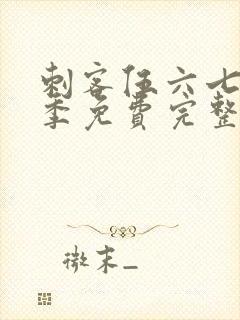 刺客伍六七
季免费完整
微末_